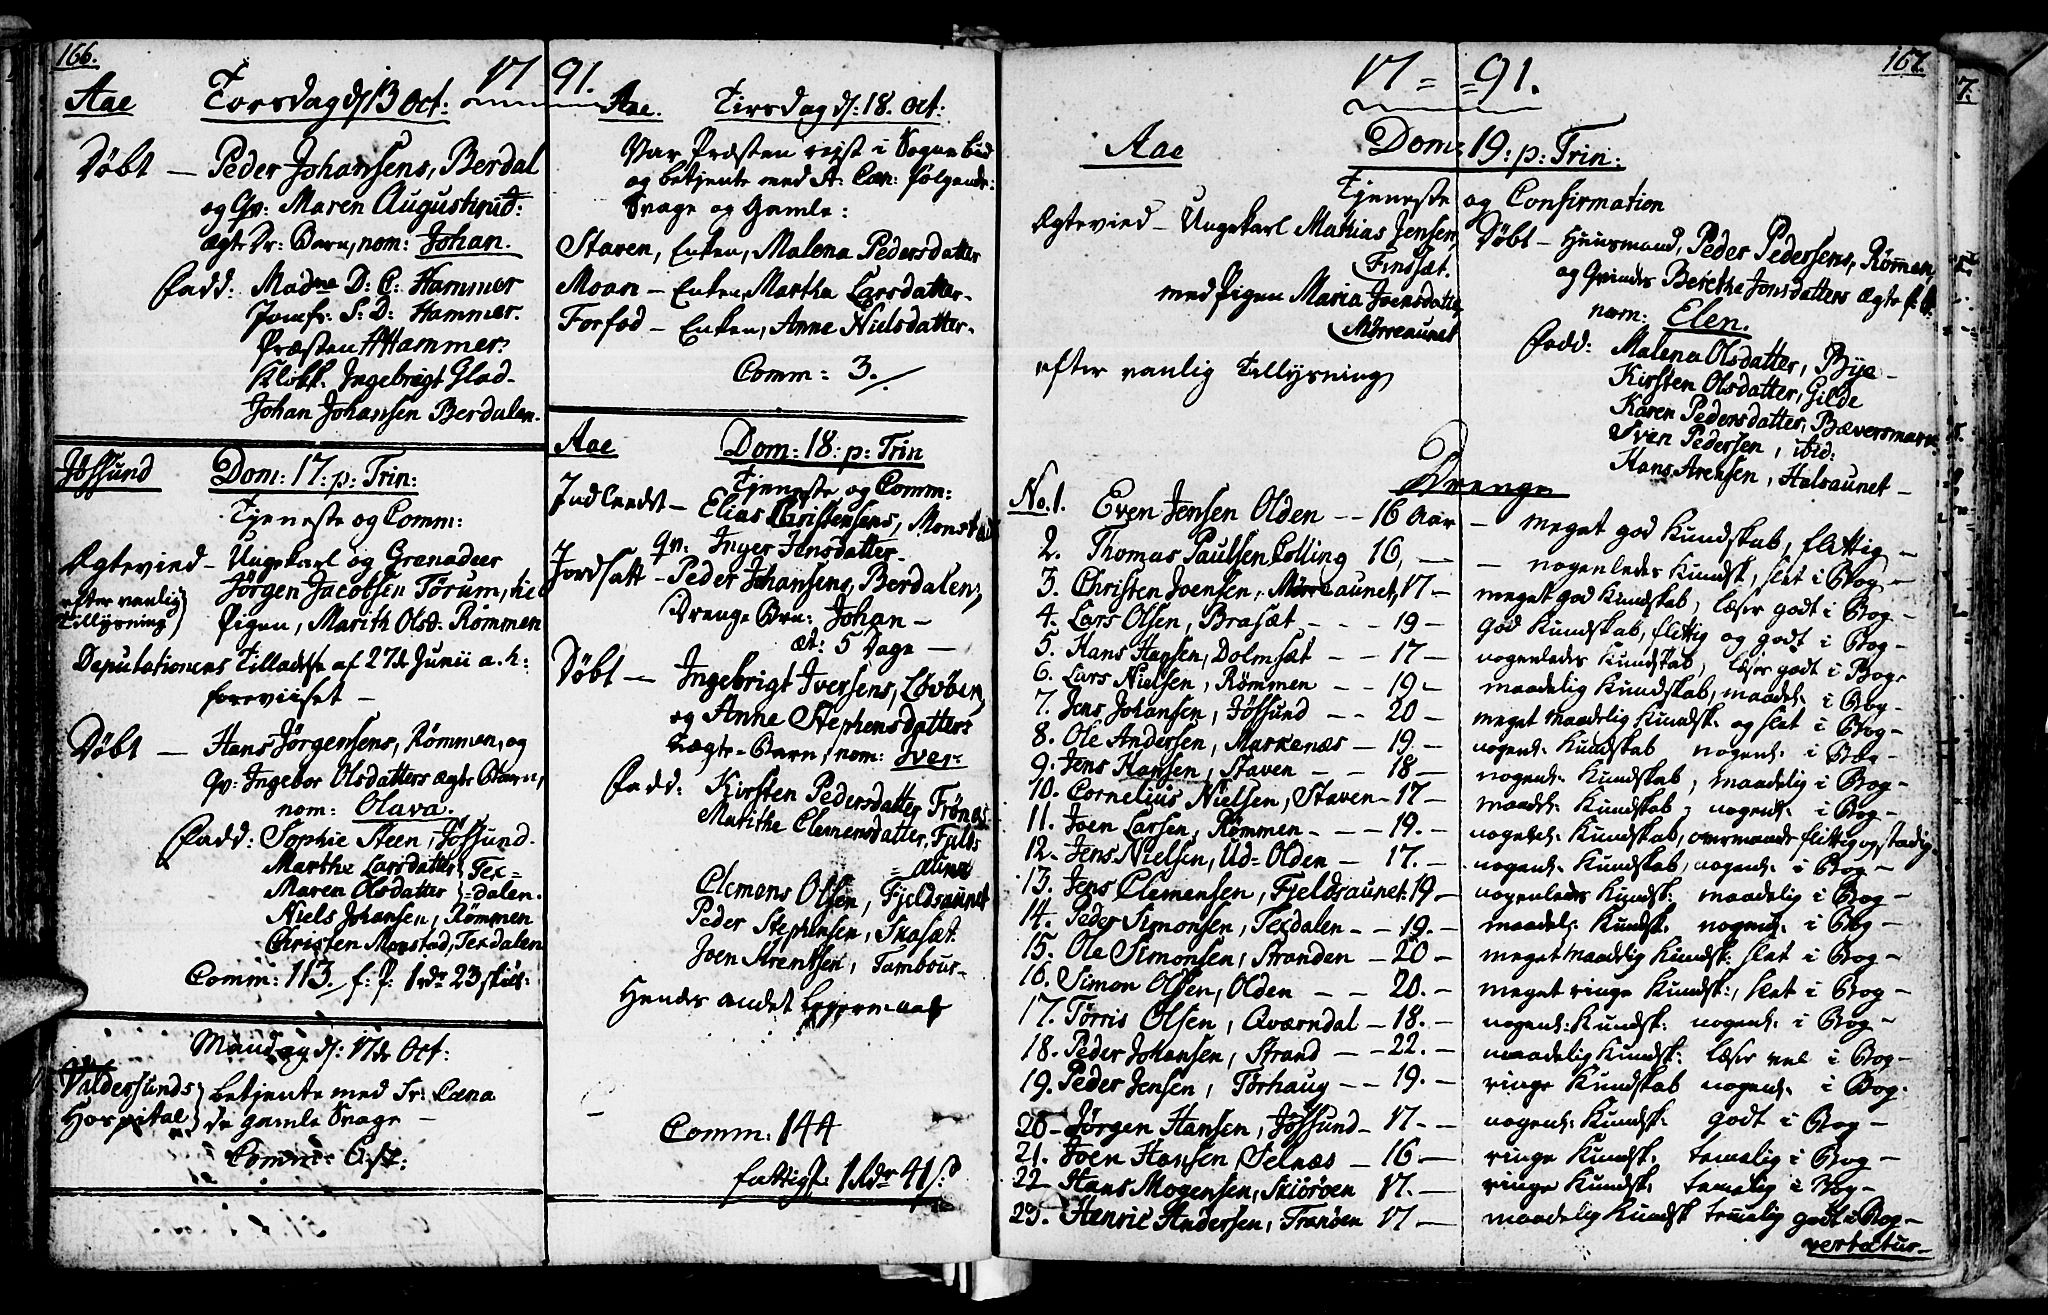 166.
17 91.
Aae Torsdag d: 13 Oct:
Døbt — Peder Johansens, Berdal
og Qv: Maren Augustinut:
ægte Dr: Barn, nom: Johan.
Fadd: Madme D: C: Hammer
Jomfr: S: D: Hammer.
Præsten HHammer.
Klokk. Ingebrigt Glad.
Johan Johansen Berdalen.
Jøssund Dom: 17: p: Trin:
Tjeneste og Comm:
Ægtevied — Ungekarl og Grenadeer
Jørgen Jacobsen Tørum, til
efter vanlig Tillysning
Pigen, Marith Olsd: Rømmen
Deputationens Tilladelse af 27de Junii a. h:
foreviiset —
Døbt — Hans Jørgensens, Rømmen, og
Qv: Ingebor Olsdatters ægte Barn,
nom: Olava.
Fadd: Sophie Steen, Jøssund.
Marthe Larsdatter Tex=
Maren Olsdatter =dalen.
Niels Johansen, Rømmen
Christen Monstad, Texdalen
Comm: 113. f: P: 1 rdr 23 skill:
Mandag d: 17de Oct:
Valdersunds Hospital
betjente med Sr: Cæna
de gamle Svage —
Comm:
Aae. Tirsdag d: 18. Oct:
Var Præsten reist i Sognebud
og betjente med A: Cæn: følgende:
Svage og Gamle:
Staven, Enken, Malena Pedersdatter
Moan — Enken, Martha Larsdatter.
Forfod — Enken, Anne Nielsdatter.
Comm: 3.
Aae Dom: 18: p: Trin
Tjeneste og Comm:
Indleedt — Elias Christensens, Monstad
qv: Inger Jensdatter.
Jordsatt — Peder Johansens, Berdalen,
Drenge Brn: Johan —
æt: 5 Dage —
Døbt — Ingebrigt Iversens, Løvøen,
og Anne Stephensdatters
ægte Barn, nom: Iver:
Fadd: Kirsten Pedersdatter Frønes
Marithe Clemensdatter, Fjelds
=aunet
Clemens Olsen, Fjeldsaunet
Peder Stephensen, Skasæt.
Joen Arentsen, Tambour.
Hendes andet
Comm: 144
fattig 1 rdr 41 s
167.
17 = = 91.
Aae Dom: 19: p: Trin:
Tjeneste og Confirmation
Ægtevied — Ungekarl Mathias Jensen,
Finssæt.
med Pigen Maria Joensdatter,
Mørreaunet
efter vanlig Tillysning
Døbt — Huusmand, Peder Pedersens, Rømmen,
og Qvindes Berethe Jonsdatters ægte
nom: Elen.
Fadd: Malena Olsdatter, Bye —
Kirsten Olsdatter, Gilde
Karen Pedersdatter, Bæversmark
Sven Pedersen, ibid:
Hans Arensen, Halsaunet —
Drenge
No. 1. Even Jensen Olden — 16 Aar — meget god Kundskab, flittig —
2. Thomas Paulsen Colling 16, — — nogenledes Kundsk, slet i Bog —
3. Christen Joensen, Mørreaunet, 17 — meget god Kundskab, læser godt i Bog —
4. Lars Olsen, Brasæt — 19 — God Kundskab, flittig og godt i Bog —
5. Hans Hansen, Dolmsæt — 17 — nogenledes Kundskab, læser godt i Bog
6. Lars Nielsen, Rømmen — 19 — maadelig Kundskab, maadel: i Bog —
7. Jens Johansen, Jøssund — 20 — meget maadelig Kundsk: og slet i Bog —
8. Ole Andersen, Markenæs — 19 — nogenl: Kundskab nogenl: i Bog —
9. Jens Hansen, Staven — 18 — nogenl: Kundskab, maadelig i Bog —
10. Cornelius Nielsen, Staven — 17 — maadel: Kundskab, nogenl: i Bog —
11. Joen Larsen, Rømmen — 19. — nogenl: Kundskab, overmaade flittig og stadig.
12. Jens Nielsen, Ud=Olden — 17. — nogenl: Kundskab, nogenl: i Bog —
13. Jens Clemensen, Fjeldsaunet. 19 — nogenledes Kundsk: maadelig i Bog —
14. Peder Simonsen, Texdalen — 19. — maadel: Kundsk: nogenl: i Bog —
15. Ole Simonsen, Stranden — 20 — meget maadelig Kundsk: slet i Bog —
16. Simon Olsen, Olden — 20. — meget ringe Kundsk:, slet i Bog —
17. Tørris Olsen, Qværndal — 18. — nogenl: Kundsk: nogenl: i Bog —
18. Peder Johansen, Strand — 22. — maadelig Kundsk: læser vel i Bog —
19. Peder Jensen, Tørhaug — 19. — ringe Kundskab nogenl: i Bog.
20 — Jørgen Hansen, Jøssund — 17. — nogenl: Kundsk: godt i Bog —
21. Joen Hansen, Selnæs — 16 — ringe Kundsk. temelig i Bog —
22 Hans Mogensen, Skiørøen 17. — ringe Kundsk: temelig i Bog —
23. Henric Andersen, Tranøen 17 — maadelig Kundsk temelig godt i Bog —
vertatur —
7.